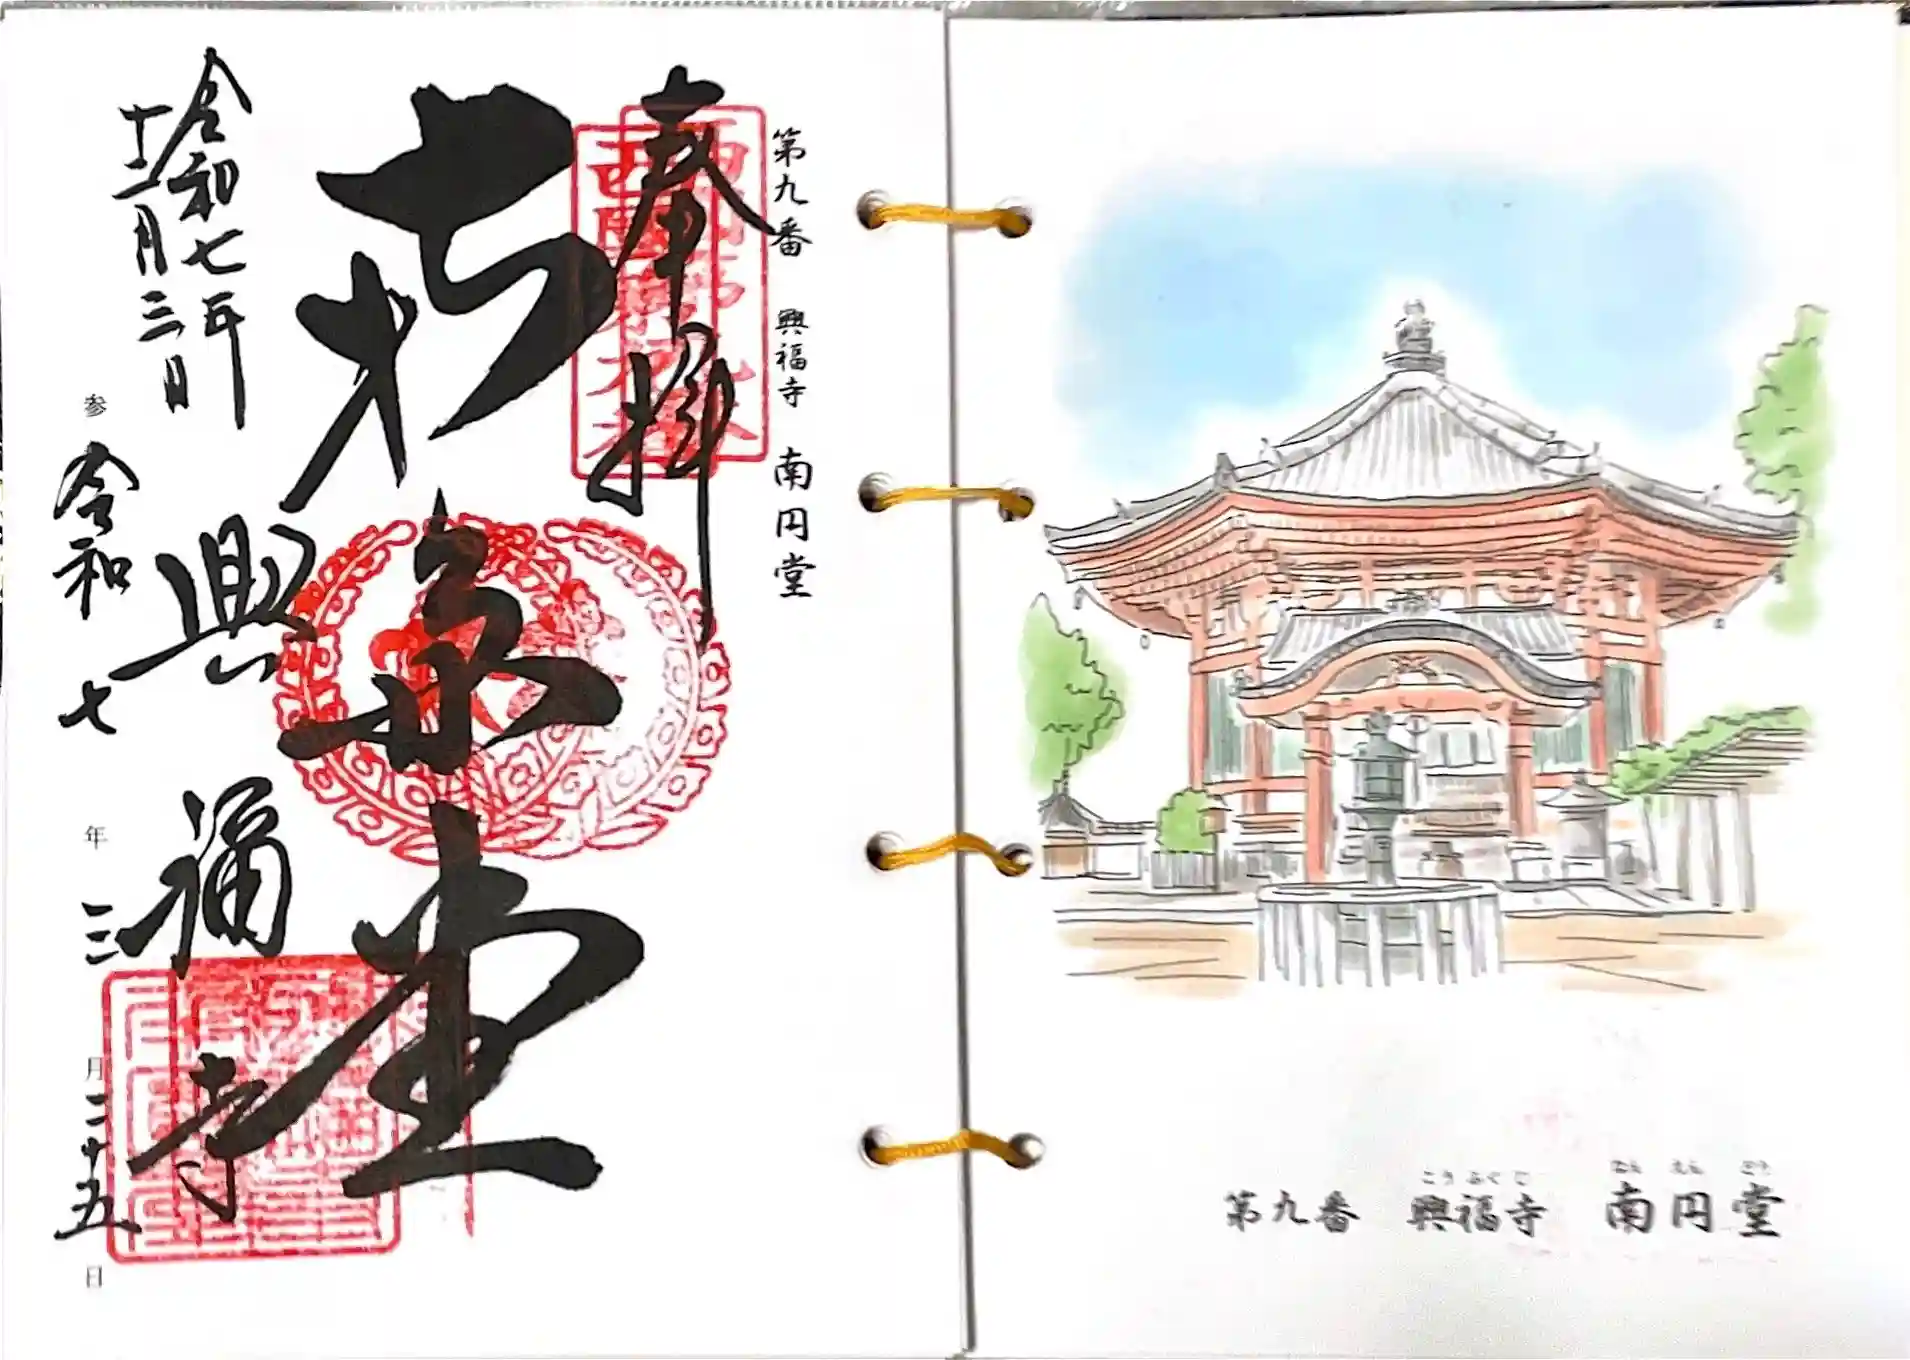 第九番 興福寺 南円堂
奉拝
堂
令和七年
十二月三日
興福寺
参 令和七年三月二十五日
こうふくじ なんえんどう
第九番 興福寺 南円堂